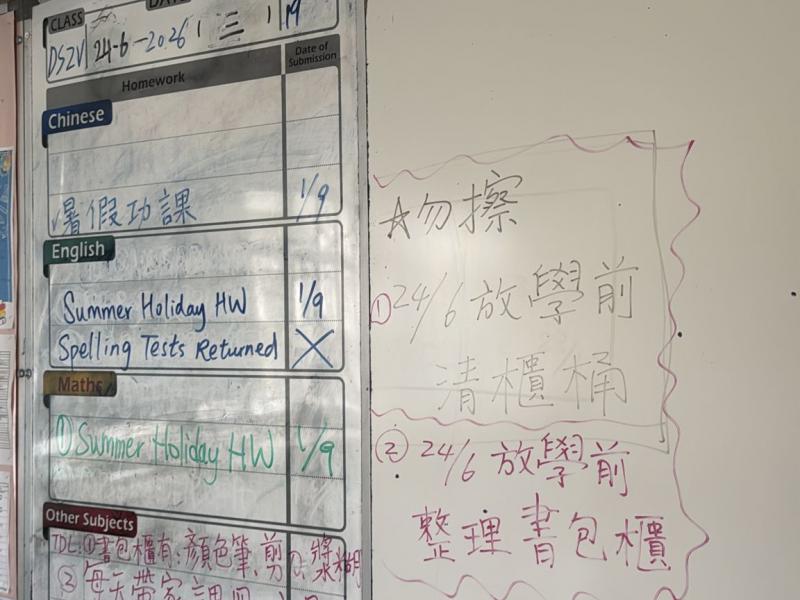 CLASS
24-6-2026 三
Homework
Date of Submission
Chinese
✓暑假功課 1/9
English
Summer Holiday HW 1/9
Spelling Tests Returned X
Maths
① Summer Holiday HW 1/9
Other Subjects
①書包櫃有:顏色筆、剪刀、漿糊
② 每天帶家課冊
☆勿擦
① 24/6 放學前
清櫃桶
② 24/6 放學前
整理書包櫃